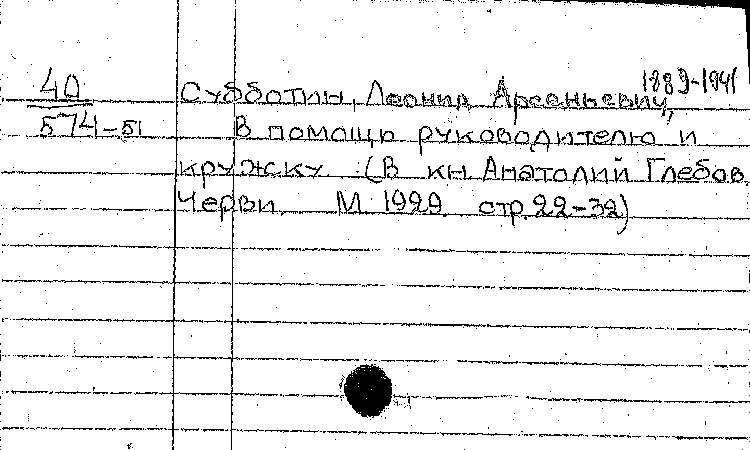 1889-1941
40 Субботин, Леонид Арсеньевич,
574-51 В помощь руководителю и
кружку. (В кн. Анатолий Глебов
Черви. М. 1929 стр. 22-32)